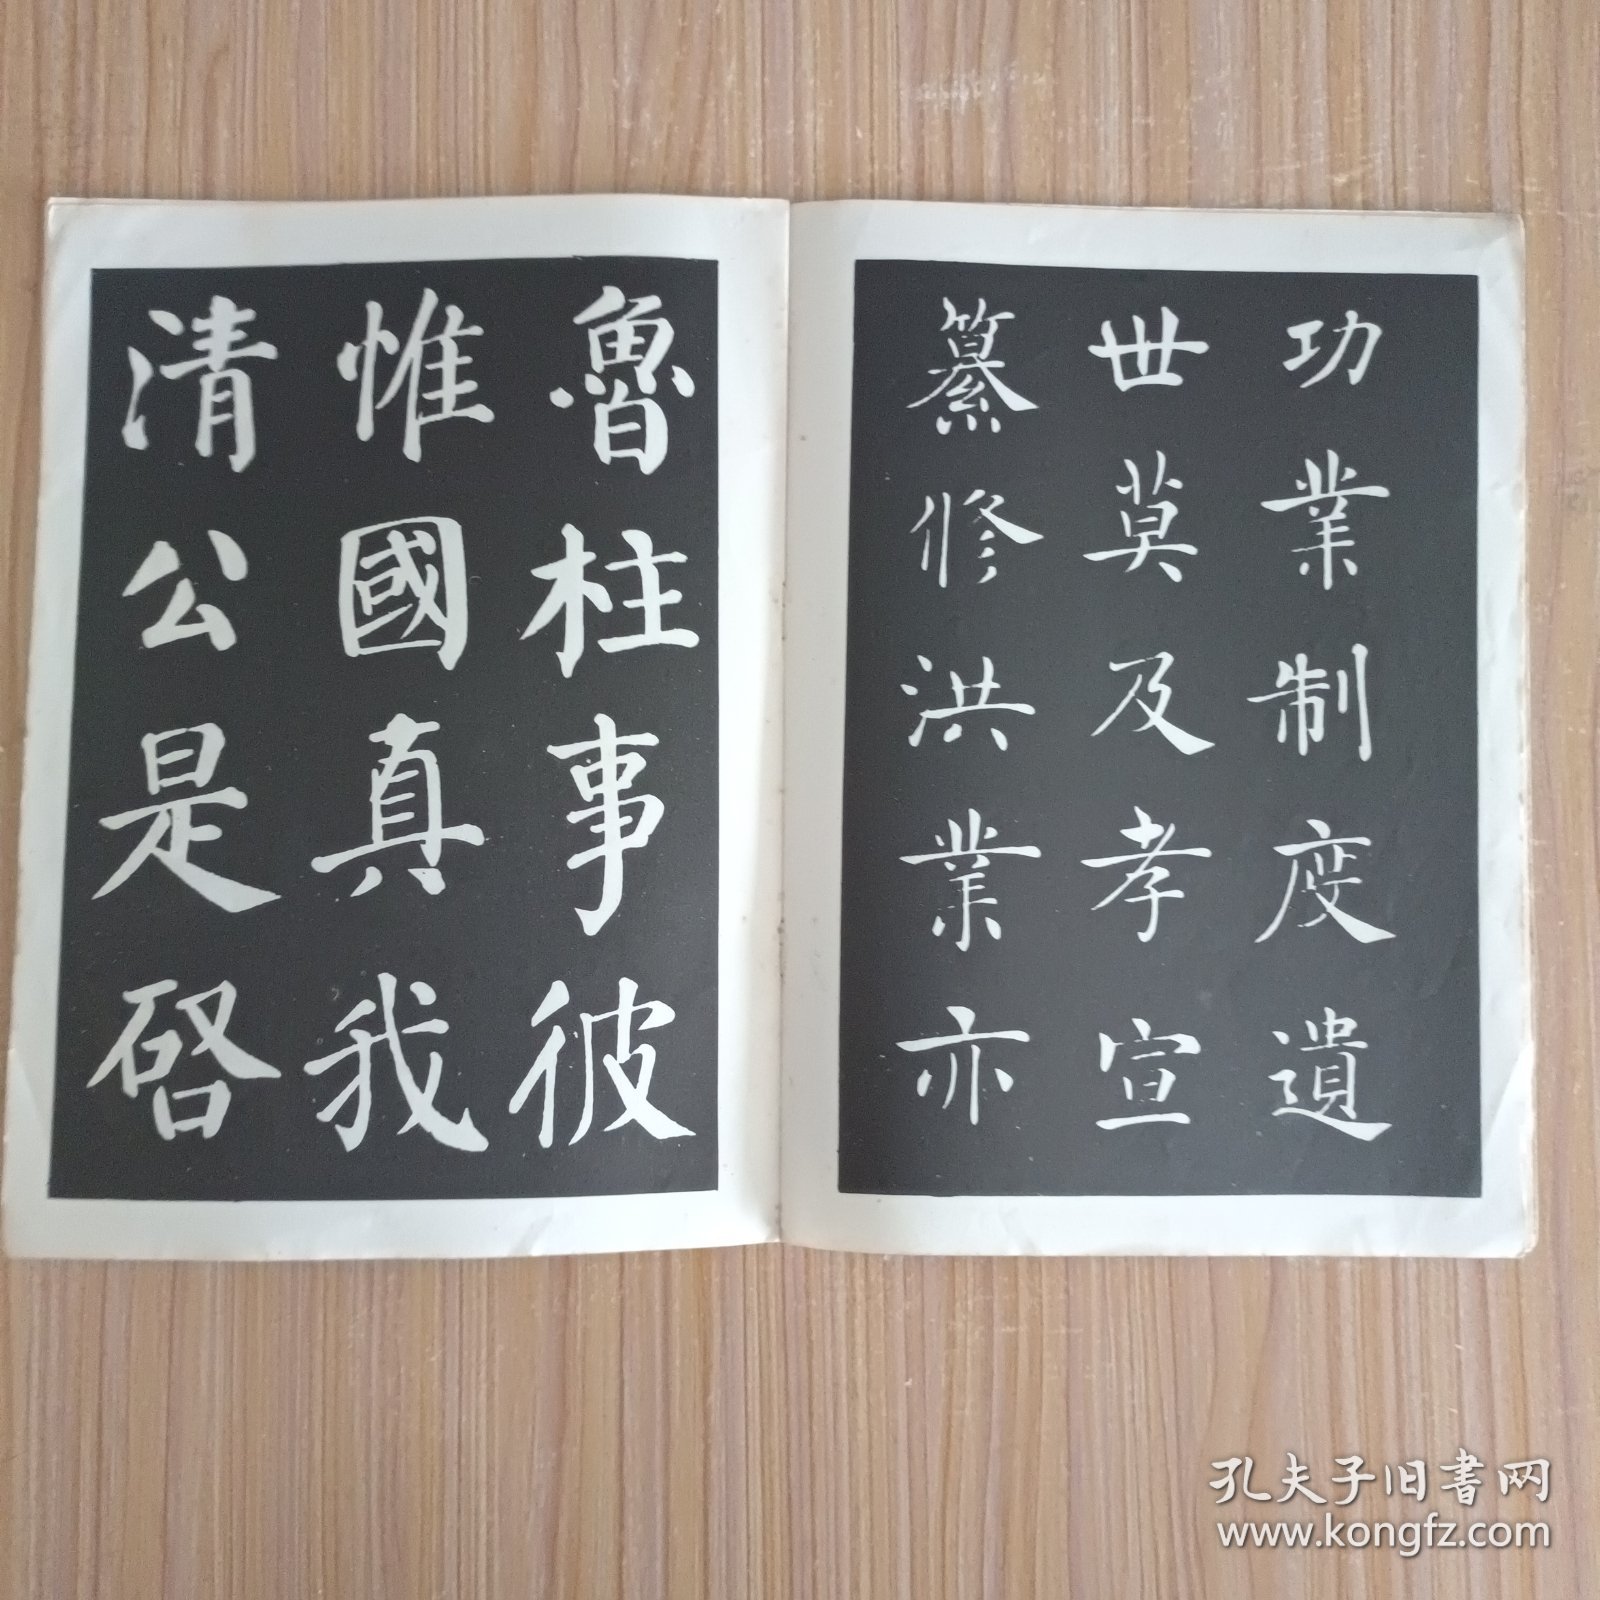 功業制度遺
世莫及孝宣
纂修洪業亦
魯柱事彼
惟國真我
清公是啓
孔夫子旧书网
www.kongfz.com